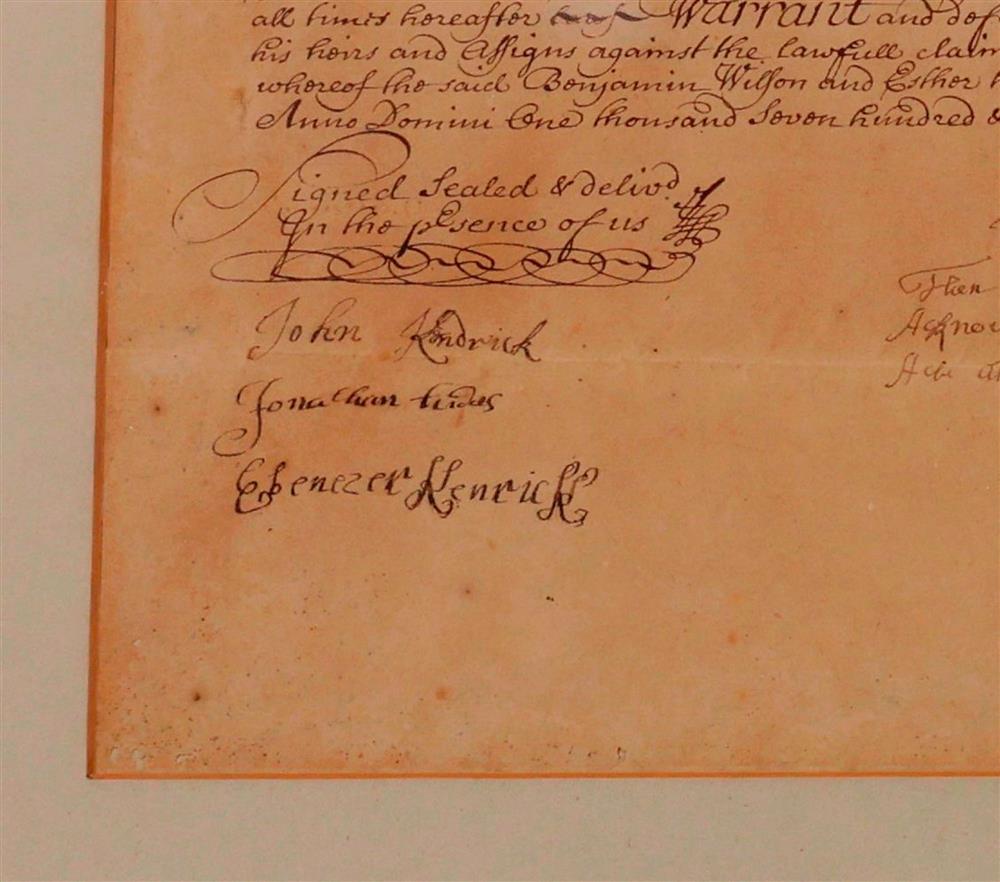 all times hereafter Warrant and def
his heirs and Assigns against the lawfull claim
whereof the said Benjamin Wilson and Esther h
Anno Domini One thousand Seven hundred &
Signed Sealed & delivd
In the presence of us
John Kendrick
Jonathan
Ebenezer Kenrick
Then
Acknow